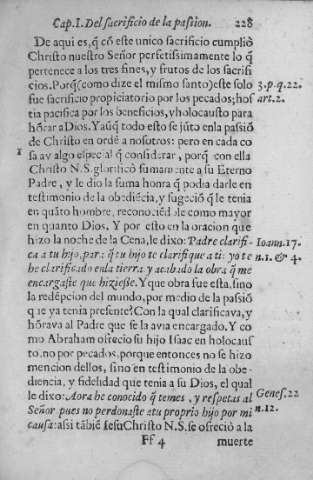 Cap. I. Del sacrificio de la passion. 228
De aqui es, q̃ cõ este unico sacrificio cumpliò
Christo nuestro Señor perfetissimamente lo q̃
pertenece a los tres fines, y frutos de los sacrifi
cios. Porq̃(como dize el mismo santo)este solo
3.p.q.22.
fue sacrificio propiciatorio por los pecados; hos
art.2.
tia pacifica por los beneficios, y holocausto para
hõrar a Dios. Y aũq̃ todo esto se jũto en la passiõ
de Christo en ordẽ a nosotros: pero en cada co
sa ay algo especial q̃ considerar, porq̃ con ella
Christo N.S. glorificò sumamente a su Eterno
Padre, y le dio la suma honra q̃ podia darle en
testimonio de la obediẽcia, y sugeciõ q̃ le tenia
en quãto hombre, reconociẽdole como mayor
en quanto Dios. Y por esto en la oracion que
hizo la noche de la Cena, le dixo: Padre clarifi-
Ioann.17.
ca a tu hijo, para q̃ tu hijo te clarifique a ti: yo te
n.1. & 4.
he clarificado en la tierra y acabado la obra q̃ me
encargaste que hiziesse. Y que obra fue esta, sino
la redẽpcion del mundo, por medio de la passiõ
que ya tenia presente? Con la qual clarificava, y
hõrava al Padre que se la avia encargado. Y co
mo Abraham ofrecio su hijo Isaac en holocaus
to, no por pecados, porque entonces no se hizo
mencion dellos, sino en testimonio de la obe-
diencia, y fidelidad que tenia a su Dios, el qual
le dixo: Aora he conocido q̃ temes, y respetas al
Genes.22
Señor pues no perdonaste a tu proprio hijo por mi
n.12.
causa: assi tãbiẽ Iesu Christo N.S. se ofreciò a la
Ff 4 muerte